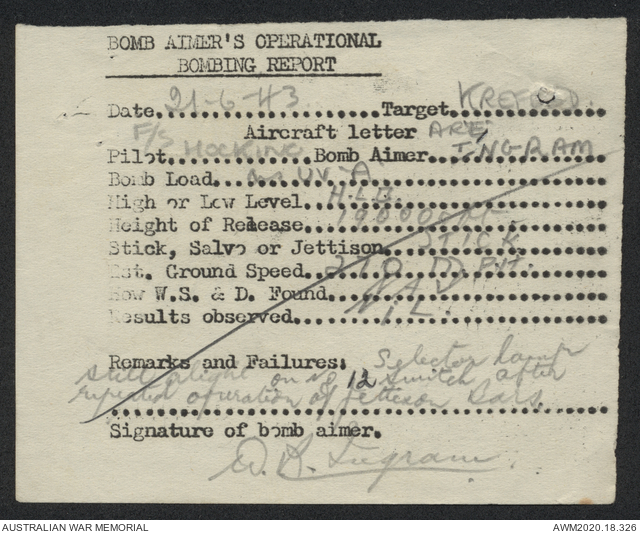 BOMB AIMER'S OPERATIONAL
BOMBING REPORT
Date 21-6-43 Target KREFELD.
Aircraft letter ARE
Pilot F/S HOCKING Bomb Aimer INGRAM
Bomb Load as UV-A
High or Low Level H.L.B.
Height of Release 19000 FT
Stick, Salvo or Jettison STICK
Est. Ground Speed 270 M.P.H.
How W.S. & D. Found NAV
Results observed NIL.
Remarks and Failures: Selector lamp
still alight on No 12 switch after
repeated operation of jettison bars.
Signature of bomb aimer.
Ingram
AUSTRALIAN WAR MEMORIAL AWM2020.18.326